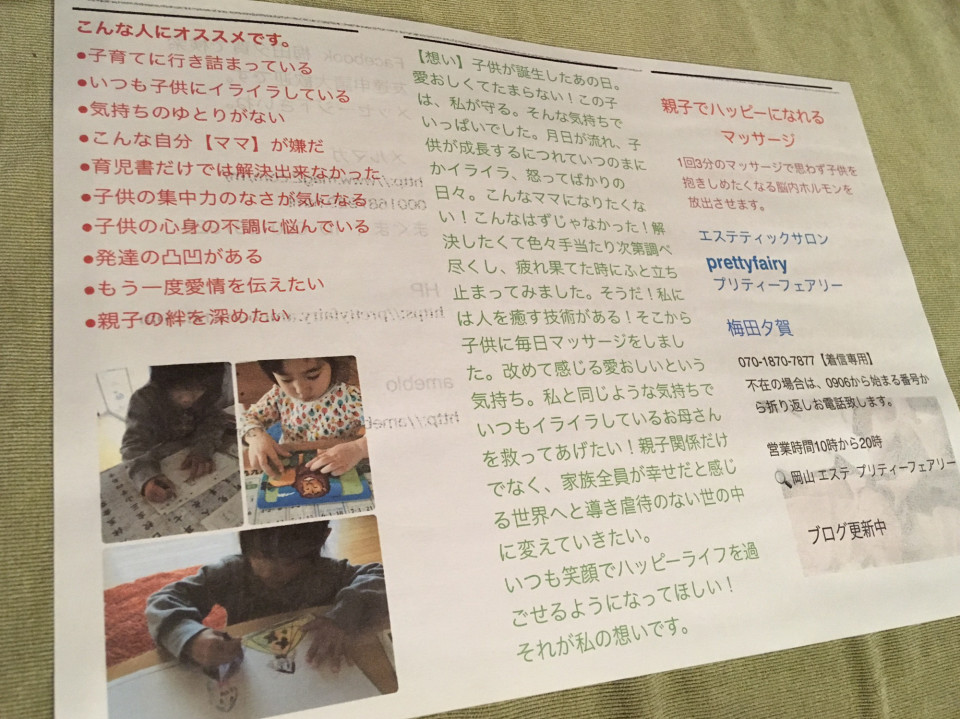 こんな人にオススメです。
●子育てに行き詰まっている
●いつも子供にイライラしている
●気持ちのゆとりがない
●こんな自分【ママ】が嫌だ
●育児書だけでは解決出来なかった
●子供の集中力のなさが気になる
●子供の心身の不調に悩んでいる
●発達の凸凹がある
●もう一度愛情を伝えたい
●親子の絆を深めたい
【想い】子供が誕生したあの日。
愛おしくてたまらない！この子
は、私が守る。そんな気持ちで
いっぱいでした。月日が流れ、子
供が成長するにつれていつのまに
かイライラ、怒ってばかりの
日々。こんなママになりたくな
い！こんなはずじゃなかった！解
決したくて色々手当たり次第調べ
尽くし、疲れ果てた時にふと立ち
止まってみました。そうだ！私に
は人を癒す技術がある！そこから
子供に毎日マッサージをしまし
た。改めて感じる愛おしいという
気持ち。私と同じような気持ちで
いつもイライラしているお母さん
を救ってあげたい！親子関係だけ
でなく、家族全員が幸せだと感じ
る世界へと導き虐待のない世の中
に変えていきたい。
いつも笑顔でハッピーライフを過
ごせるようになってほしい！
それが私の想いです。
親子でハッピーになれる
マッサージ
1回3分のマッサージで思わず子供を
抱きしめたくなる脳内ホルモンを
放出させます。
エステティックサロン
prettyfairy
プリティーフェアリー
梅田夕賀
070-1870-7877【着信専用】
不在の場合は、0906から始まる番号か
ら折り返しお電話致します。
営業時間10時から20時
岡山 エステ プリティーフェアリー
ブログ更新中